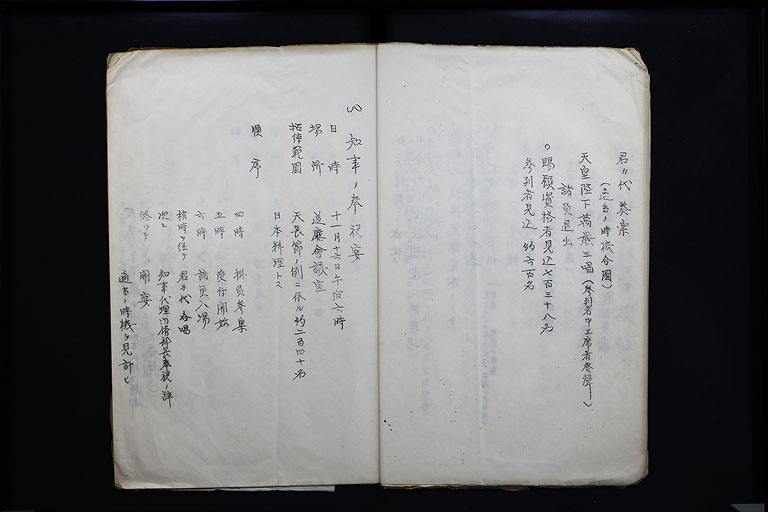 君カ代 奏楽
(適当ノ時機合図)
天皇陛下萬歳三唱(参列者中上席者発声)
諸員退出
○賜饌資格者見込七百三十八名
参列者見込 約六百名
(八)知事ノ奉祝宴
日時 十一月十六日午后六時
場所 道庁会議室
招待範囲 天長節ノ例ニ依ル約二百四十名
日本料理トス
順序
四時 掛員参集
五時 受付開始
六時 諸員入場
君カ代合唱
次テ 知事代理内務部長奉祝ノ辞
終ツテ 開宴
適当ノ時機ヲ見計ヒ